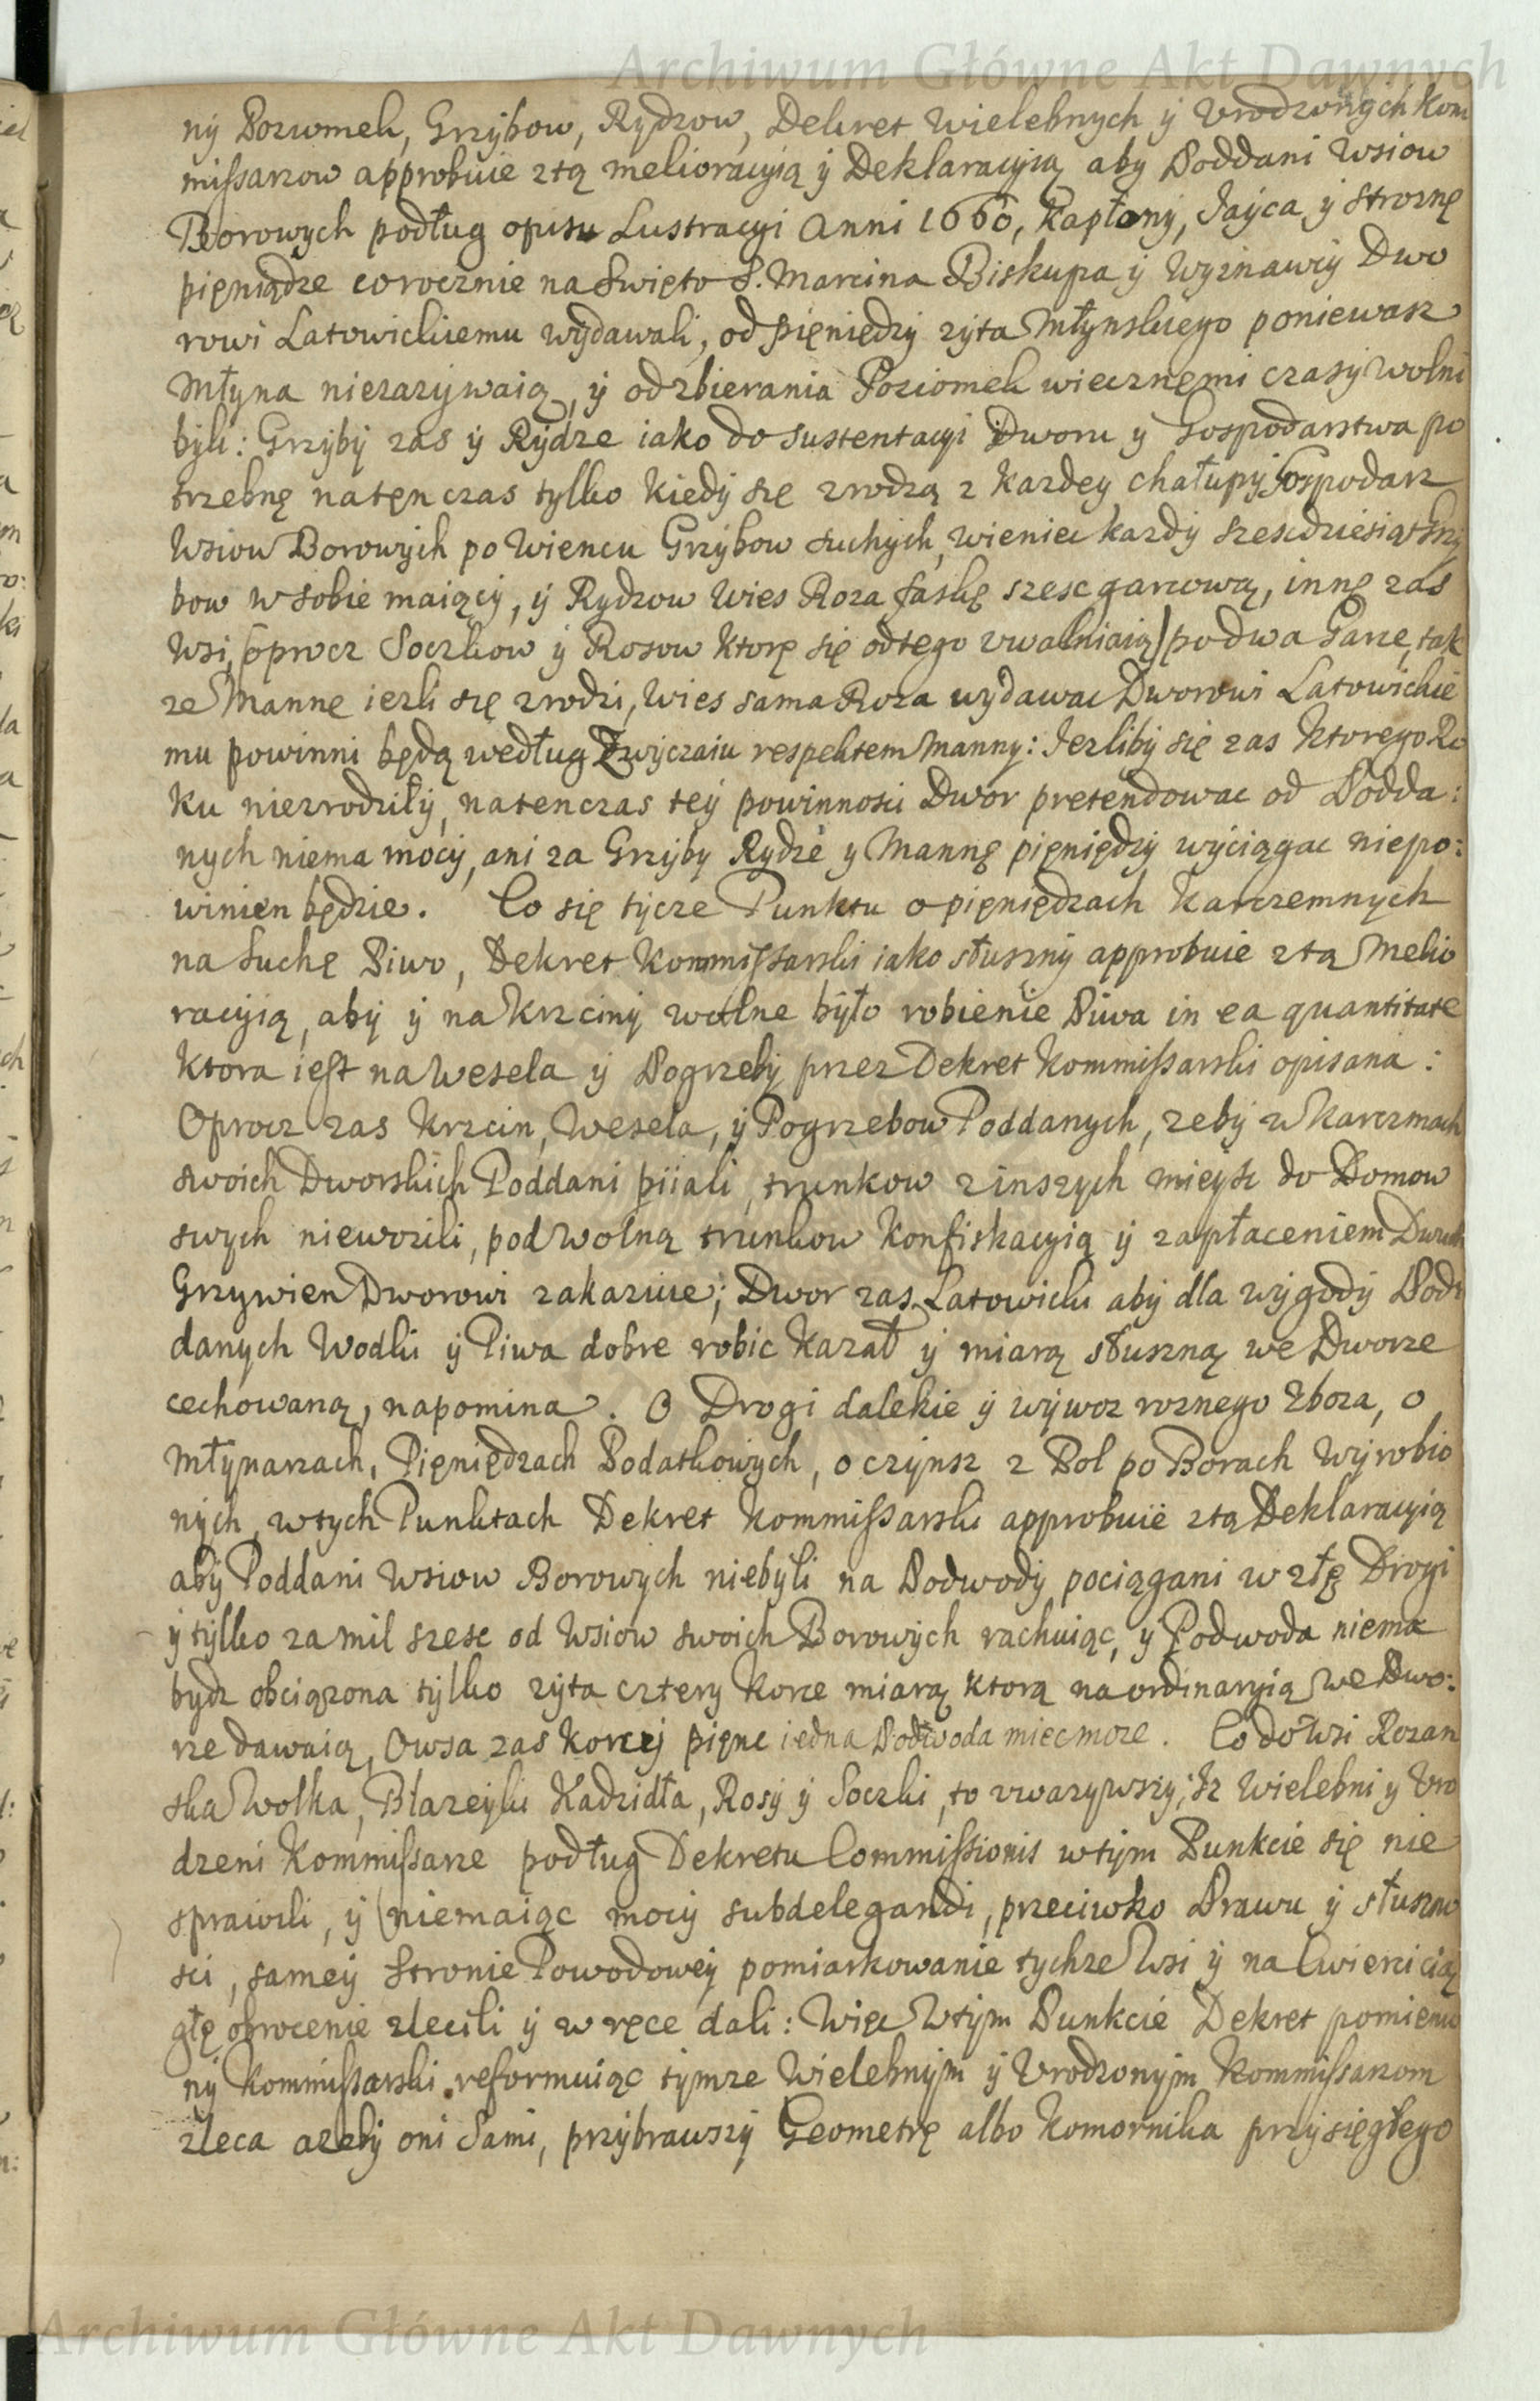 Archiwum Główne Akt Dawnych
ny Poziomek, Grzybow, Rydzow, Dekret Wielebnych y Vrodzonych Kom
missarzow approbuie z tą melioracyią y Deklaracyią aby Poddani Wsiow
Borowych podług opisu Lustracyi Anni 1660, Kapłony, Jayca y Strożnę
pięniądze corocznie na Swięto S. Marcina Biskupa y Wyznawcy Dwo
rowi Latowickiemu wydawali, od pięniędzy zyta Młynskiego poniewasz
Młyna niezazywaią, y od zbierania Poziomek wiecznęmi czasy wolni
byli: Grzyby zas y Rydze iako do sustentacyi Dworu y Gospodarstwa po
trzebnę natęnczas tylko kiedy się zrodzą z Kazdey chałupy Gospodarz
Wsiow Borowych po Wiencu Grzybow suchych, wieniec kazdy szescdziesiąt Grzy
bow w sobie maiący, y Rydzow Wies Roza faskę szesc garcową, innę zas
Wsi, (oprocz Soczkow y Rosow ktorę się od tego vwalniaią) po dwa Garce, tak
ze Mannę iezli się zrodzi, Wies sama Roza wydawac Dworowi Latowickie
mu powinni będą według Zwyczaiu respektem Manny: Jezliby się zas ktorego Ro
ku niezrodziły, natenczas tey powinnosci Dwor pretendowac od Podda:
nych niema mocy, ani za Grzyby Rydze y Mannę pięniędzy wyciągac niepo:
winien będzie. Co się tycze Punktu o pięniędzach Karczemnych
na Suchę Piwo, Dekret Kommissarski iako słuszny approbuie z tą Melio
racyią, aby y na Krzciny wolne było robienie Piwa in ea quantitate
ktora iest na Wesela y Pogrzeby przez Dekret Kommissarski opisana:
Oprocz zas Krzcin, Wesela, y Pogrzebow Poddanych, zeby w Karczmach
swoich Dworskich Poddani piiali, trunkow z inszych mieysc do Domow
swych niewozili, pod wolną trunkow Konfiskacyią y zapłaceniem Dwuch
Grzywien Dworowi zakazuie; Dwor zas Latowicki aby dla wygody Pod:
danych Wodki y Piwa dobre robic Kazał y miarą słuszną we Dworze
cechowaną, napomina. O Drogi dalekie y wywoz roznego Zboza, o
Młynarzach, Pięniędzach Podatkowych, o czynsz z Pol po Borach Wyrobio
nych, w tych Punktach Dekret Kommissarski approbuie z tą Deklaracyią
aby Poddani Wsiow Borowych niebyli na Podwody pociągani w złę Drogi
y tylko za mil szesc od Wsiow swoich Borowych rachuiąc, y Podwoda niema
bydz obciązona tylko zyta cztery Korce miarą ktorą na ordinaryią we Dwo:
rze dawaią, Owsa zas Korcej pięnc iedna Podwoda miec moze. Co do Wsi Rozan
ska Wolka, Błazeyki Kadzidła, Rosy y Soczki, to vwazywszy, Iz Wielebni y Vro
dzeni Kommissarze podług Dekretu Commissionis w tym Punkcie się nie
sprawili, y (niemaiąc mocy subdelegandi, przeciwko Prawu y słuszno
sci, samey Stronie Powodowey pomiarkowanie tychze Wsi y na Cwierci cią
głę obrocenie zlecili y w ręce dali: Więc w tym Punkcie Dekret pomienio
ny Kommissarski reformuiąc tymze Wielebnym y Vrodzonym Kommissarzom
zleca azeby oni Sami, przybrawszy Geometrę albo Komornika przysięgłego
Archiwum Główne Akt Dawnych